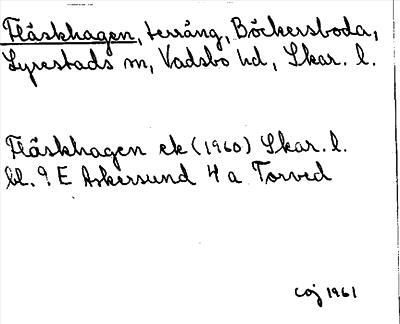 Fläskhagen, terräng, Böckersboda,
Lyrestads sn, Vadsbo hd, Skar. l.
Fläskhagen ek (1960) Skar. l.
bl. 9 E Askersund 4 a Torved
COJ 1961